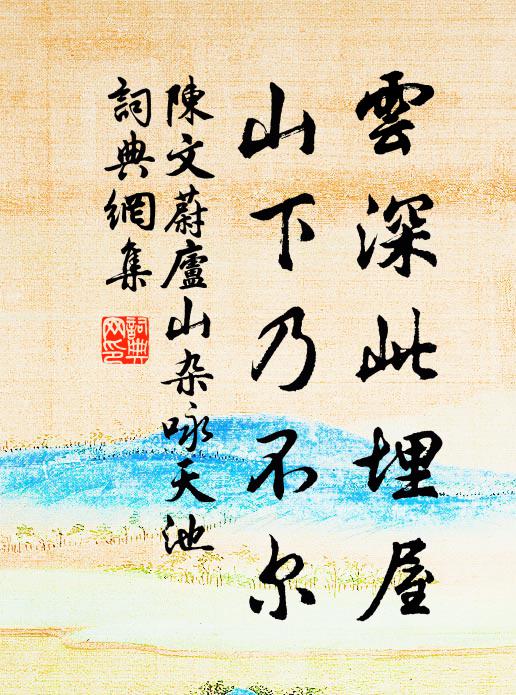 雲深此埋屋
山下乃不尔
陳文蔚廬山杂咏天池
詞典網集
詞典网印